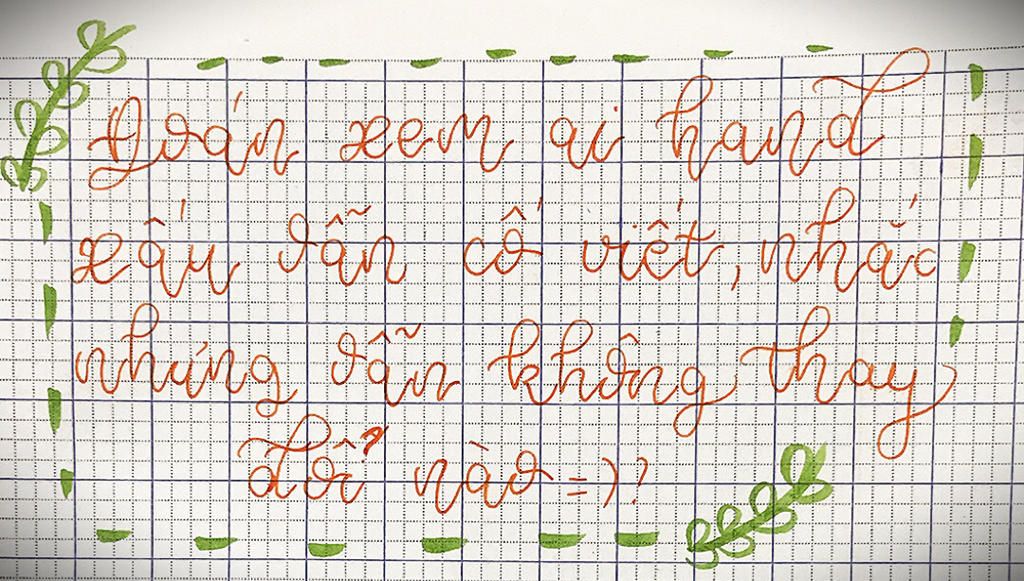 Đoán xem ai hand
xấu vẫn cố viết, nhắc
nhưng vẫn không thay
đổi nào =)?